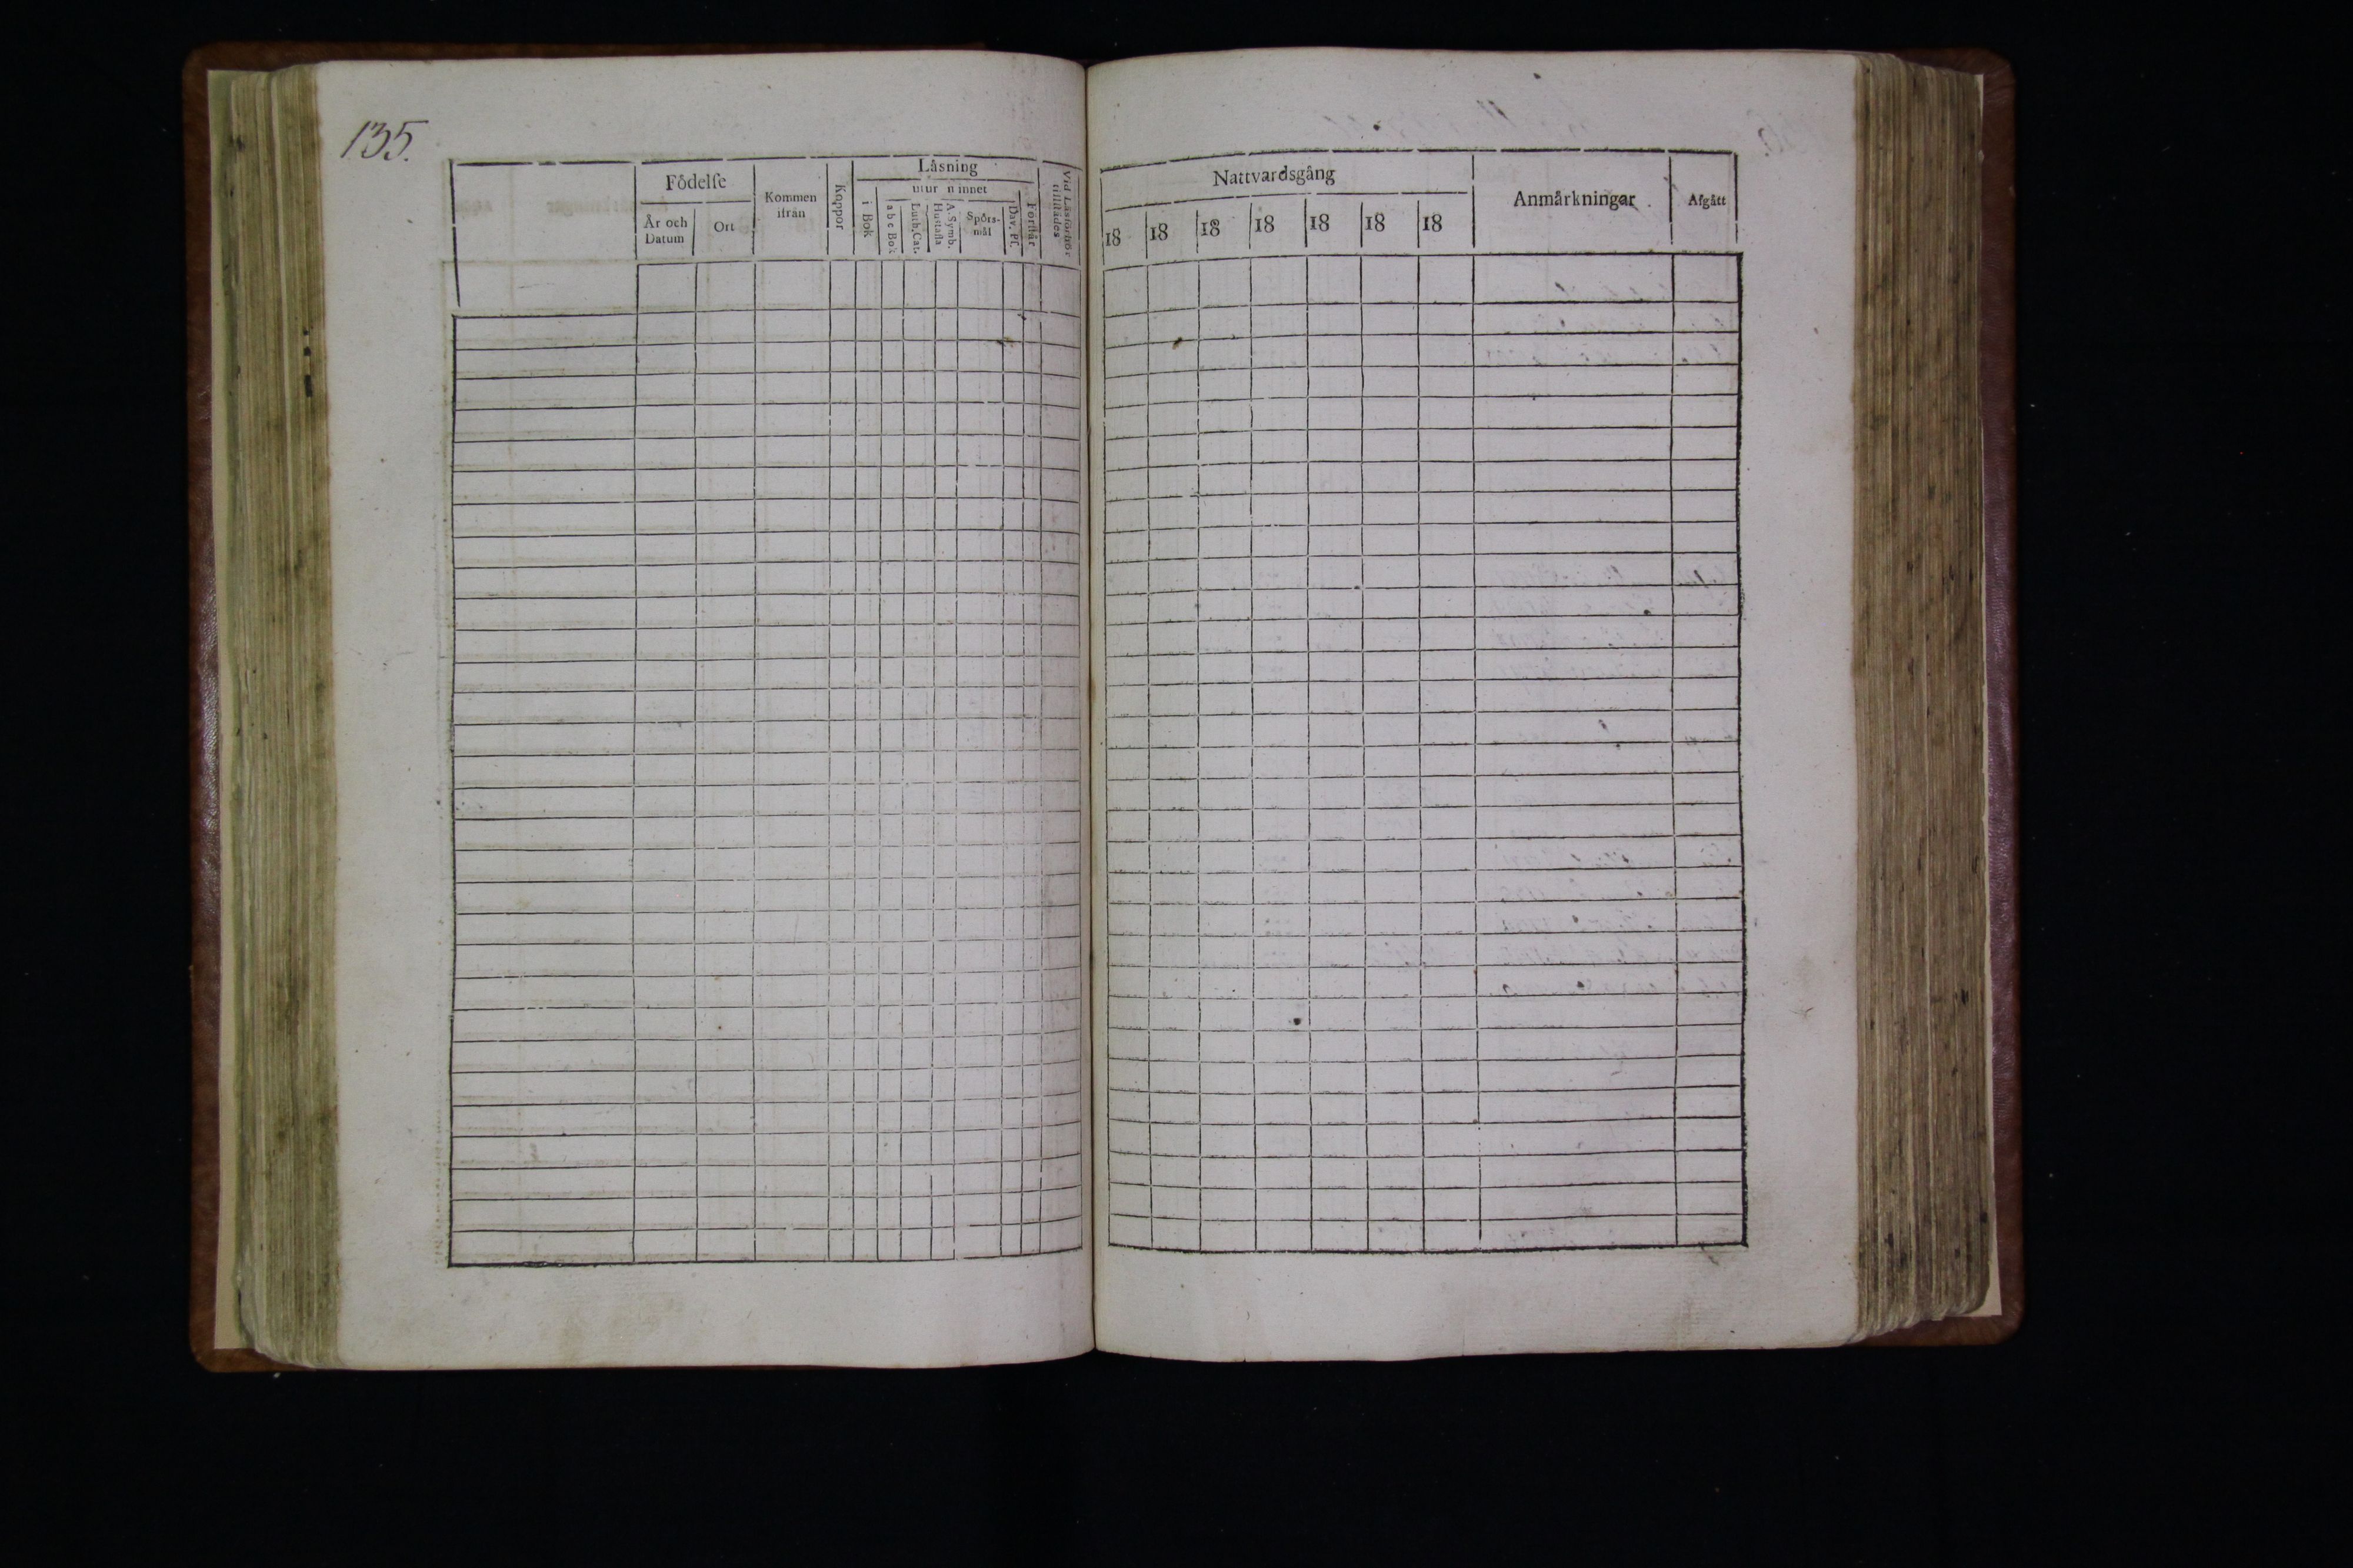 135.
Födelse
År och Datum
Ort
Kommen ifrån
Koppor
Läsning
i Bok
utur minnet
a b c Bok
Luth. Cat.
A. Symb. Hustafla
Spörs-mål
Dav. Ps.
Förstår
Vid Läsförhör tillstädes
Nattvardsgång
18 18 18 18 18 18 18
Anmärkningar
Afgått